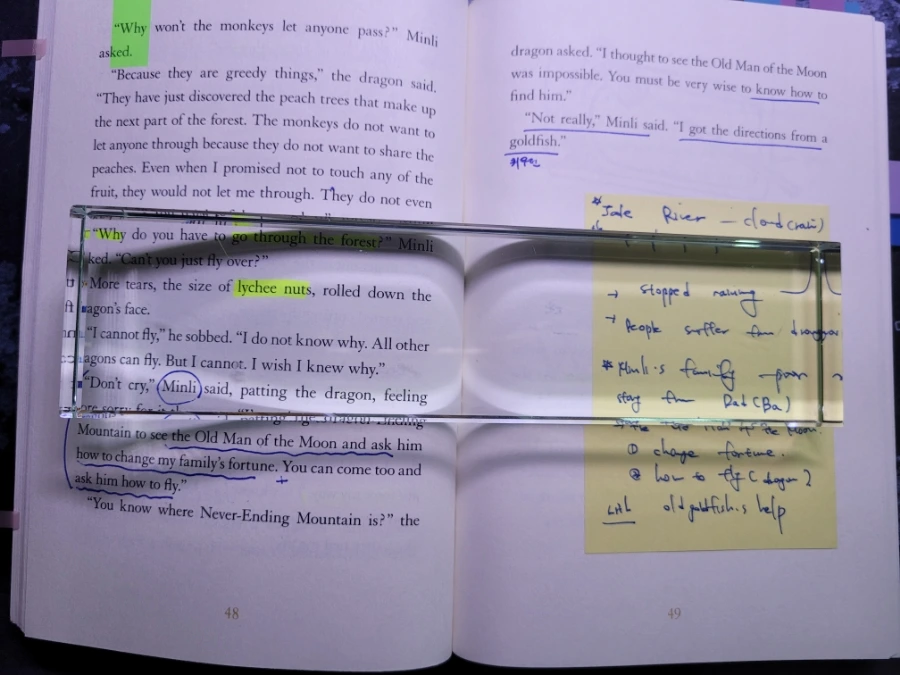 "Why won't the monkeys let anyone pass?" Minli
asked.
"Because they are greedy things," the dragon said.
"They have just discovered the peach trees that make up
the next part of the forest. The monkeys do not want to
let anyone through because they do not want to share the
peaches. Even when I promised not to touch any of the
fruit, they would not let me through. They do not even
"Why do you have to go through the forest?" Minli
ked. "Can't you just fly over?"
More tears, the size of lychee nuts, rolled down the
agon's face.
"I cannot fly," he sobbed. "I do not know why. All other
agons can fly. But I cannot. I wish I knew why."
"Don't cry," Minli said, patting the dragon, feeling
Mountain to see the Old Man of the Moon and ask him
how to change my family's fortune. You can come too and
ask him how to fly."
"You know where Never-Ending Mountain is?" the
48
dragon asked. "I thought to see the Old Man of the Moon
was impossible. You must be very wise to know how to
find him."
"Not really," Minli said. "I got the directions from a
goldfish."
*Jade River –
→ stopped raining
→ People suffer
* Minli's family – poor
stay Dad (Ba)
① change fortune.
② how to fly (dragon)
old goldfish's help
49